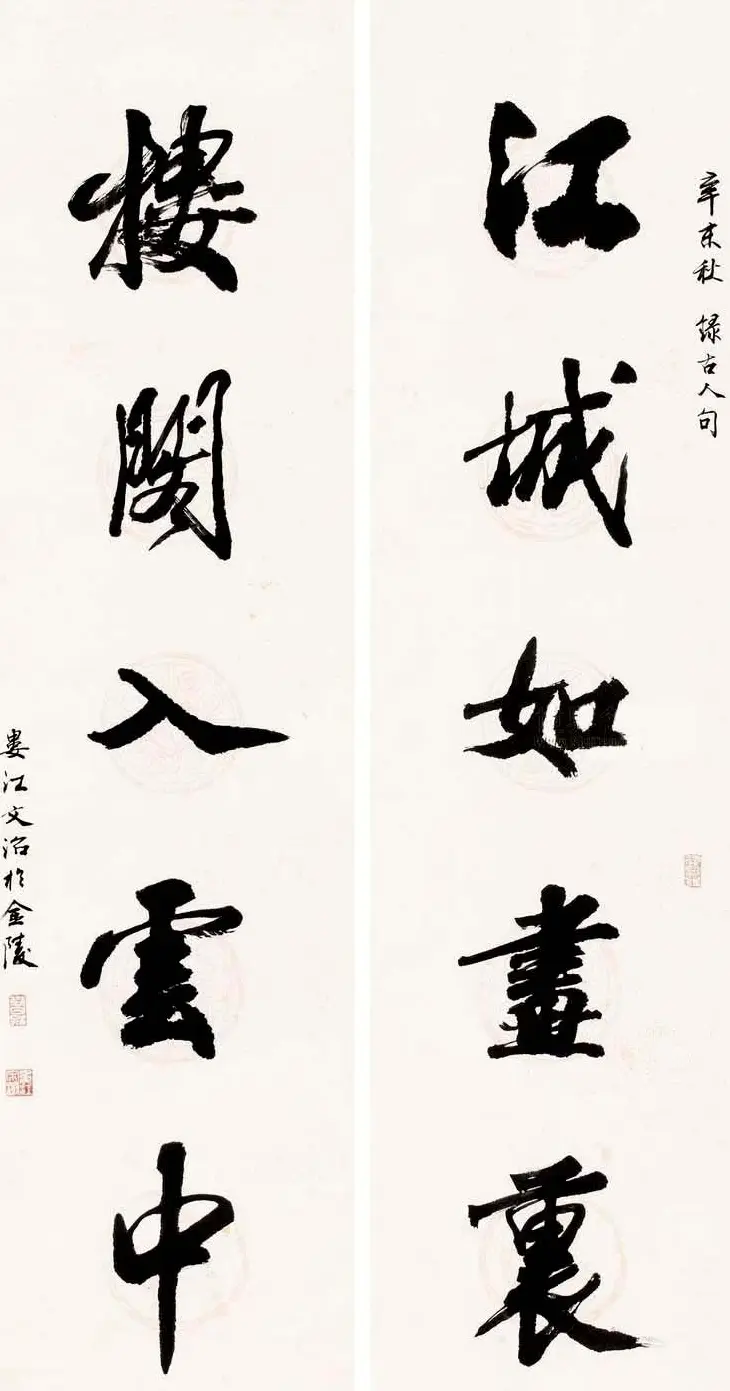 辛未秋 録古人句
江城如畫裏
樓閣入雲中
婁江文治於金陵